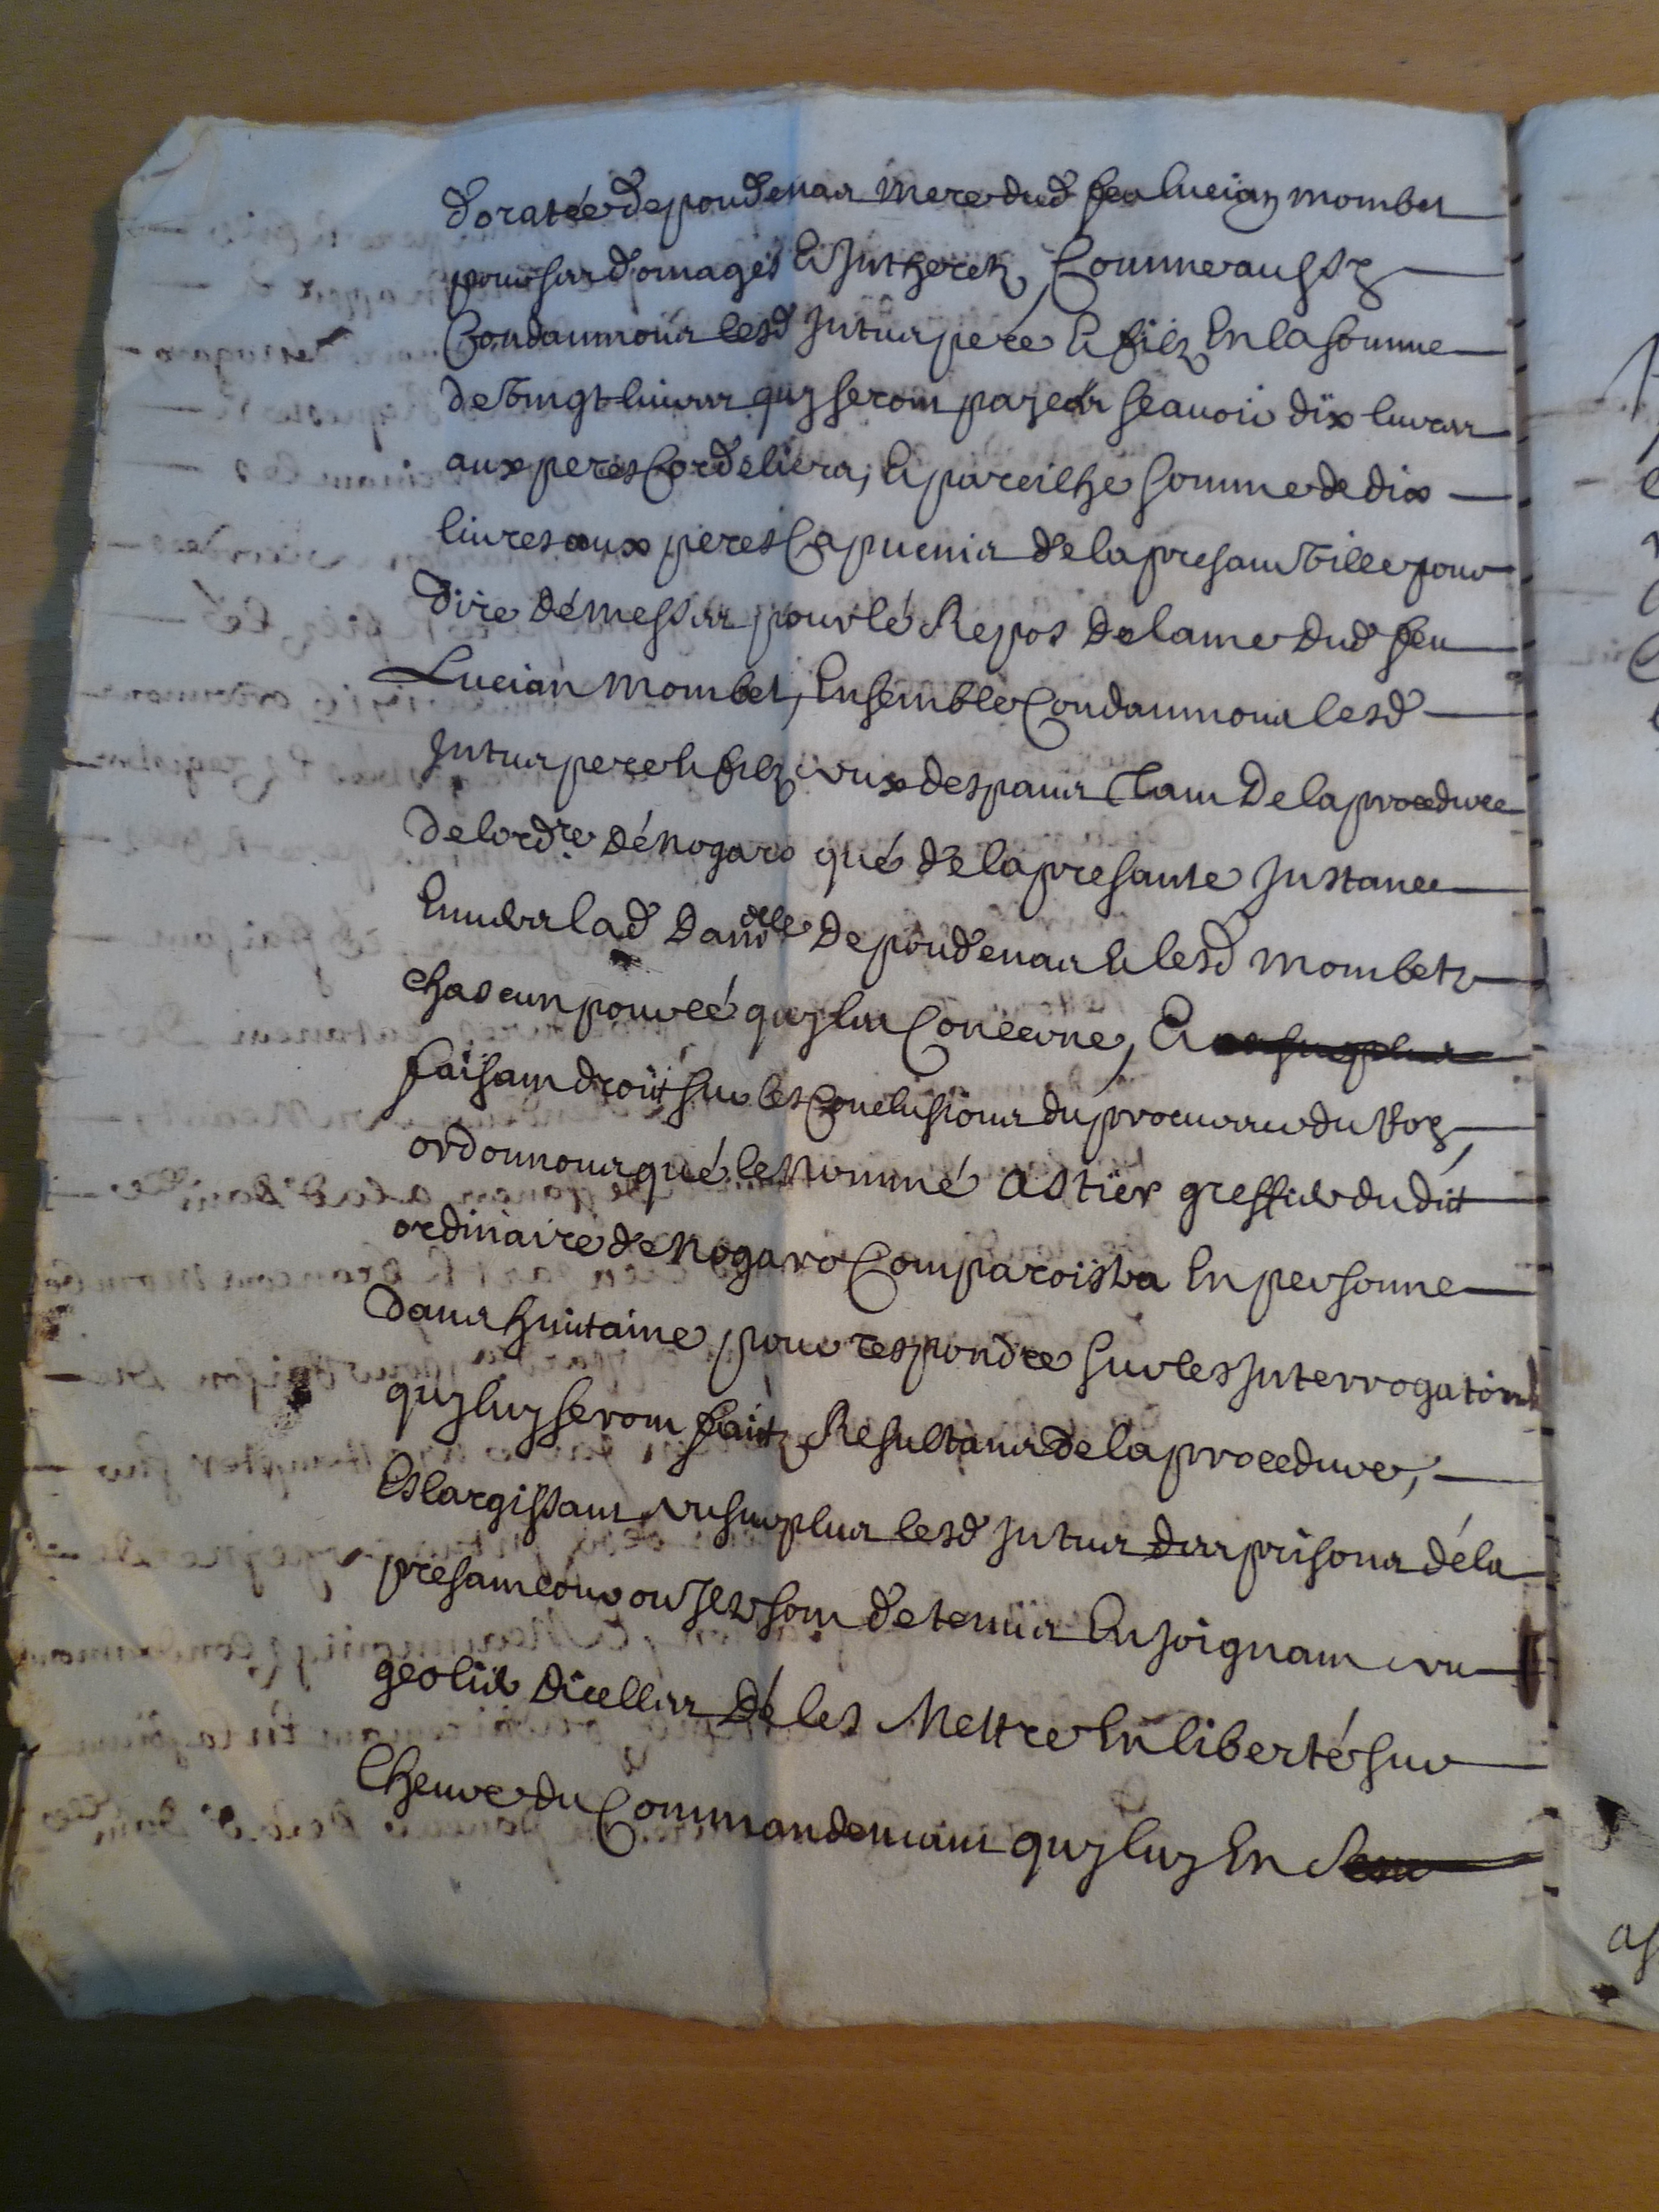 doratée de poudenas mere dud feu lucian mombet
pour ses domages et Intheretz, Comme aussy
Condamnons lesd Intras pere et filz En la somme
de vingt livres quy seront payees scavoir dix livres
aux peres Cordeliers, et pareilhe somme de dix
livres aux peres Capucins de la presant ville pour
dire de messes pour le Repos de lame dud feu
Lucian mombet, Ensemble Condamnons lesd
Intras pere et filz aux despans tant de la procedure
de lordre de nogaro que de la presante Instance
Envers lad damlle de poudenas et lesd mombetz
chascun pour ce quy les Concerne, Et au surplus
faisant droit sur les Conclusions du procureur du Roy,
ordonnons que le nommé astier greffier dudit
ordinaire de nogaro Comparoistra En personne
dans huitaine pour respondre sur les Interrogatoires
quy luy seront faitz Resultans de la procedure,
Eslargissant au surplus lesd Intras des prisons de la
presant cour ou Ilz sont detenus Enjoignant au
geolier dicelles de les Mettre En liberté sur
lheure du Commandement quy luy En sera